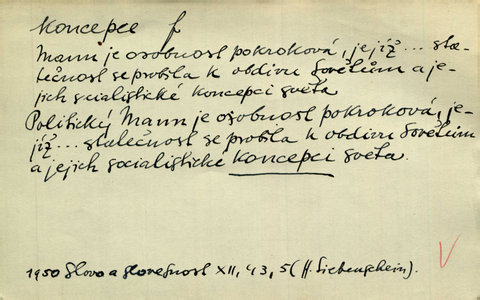 Koncepce f
Mann je osobnost pokroková, jejíž... sta-
tečnost se probila k obdivu Sovětům a je-
jich socialistické koncepci světa
Politický Mann je osobnost pokroková, je-
jíž... statečnost se probila k obdivu Sovětům
a jejich socialistické koncepci světa.
1950 Slovo a slovesnost XII, 43, 5 (H. Siebenschein).
V